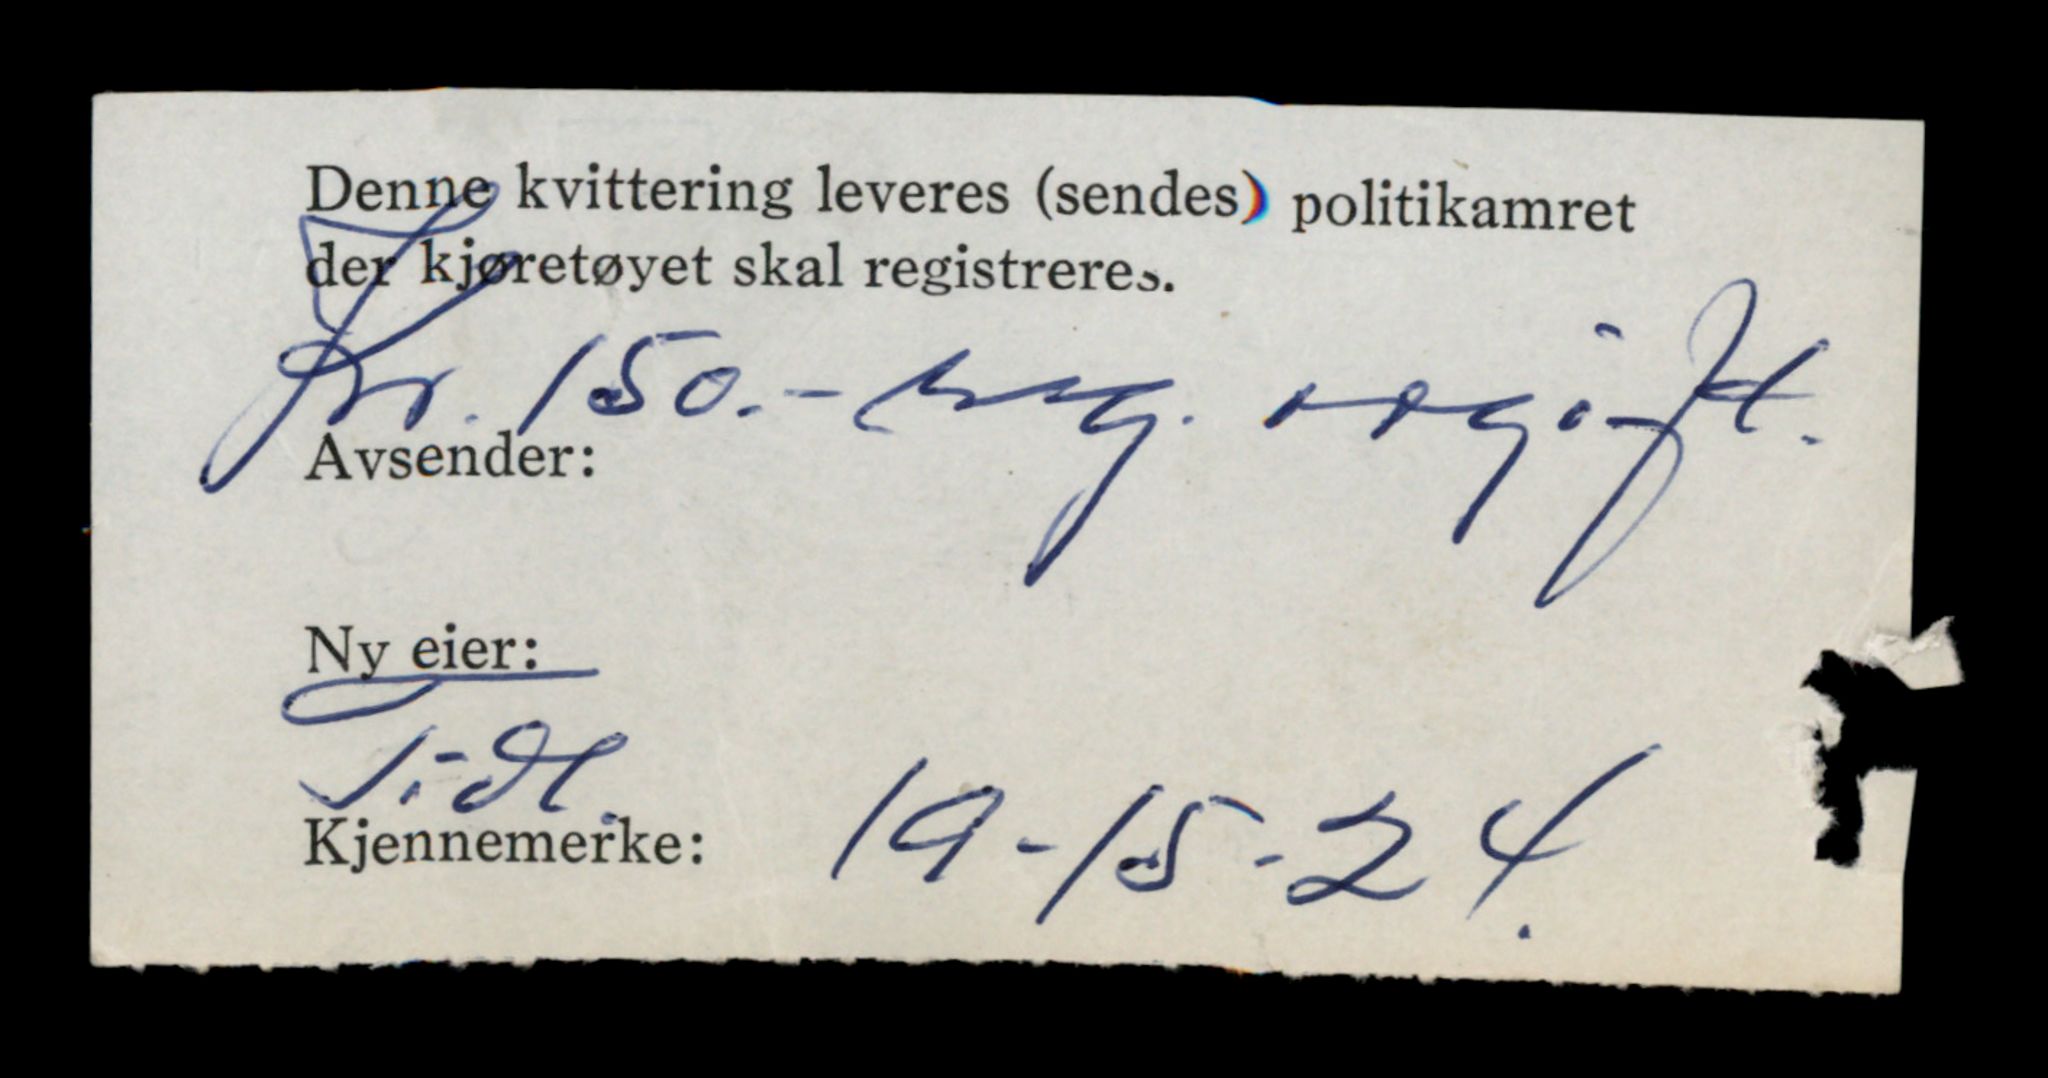 Denne kvittering leveres (sendes) politikamret
der kjøretøyet skal registreres.
Kr. 150.-
Avsender:
Ny eier:
Tidl.
Kjennemerke: 19-15-24.